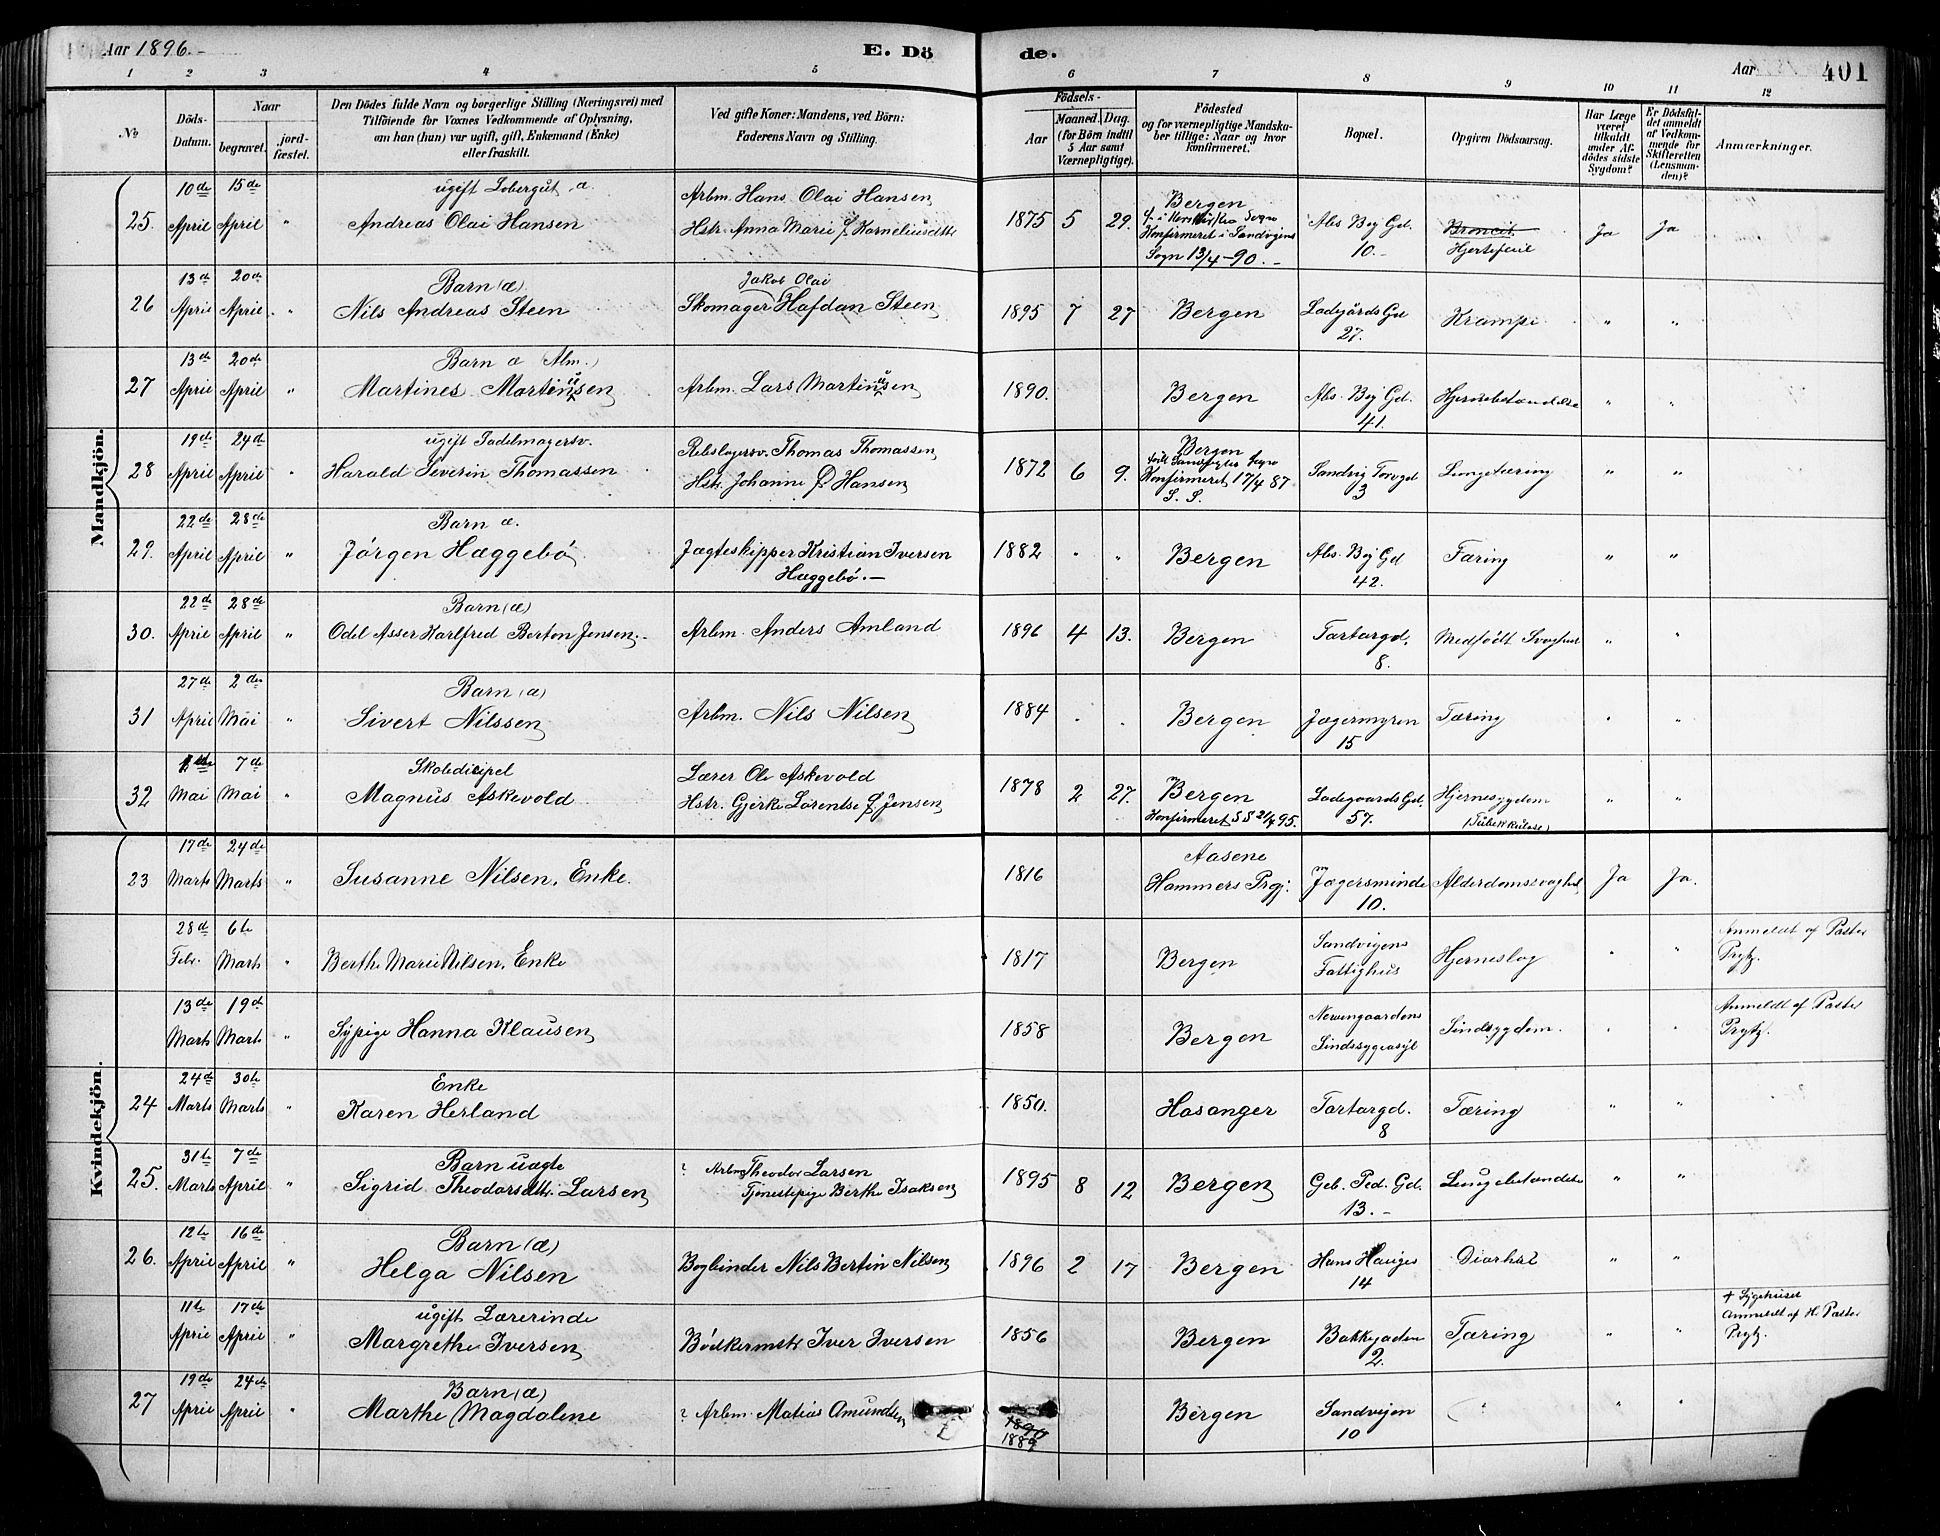 Aar 1896.-
E. Dö de.
Aar 401
1 2 3 4 5 6 7 8 9 10 11 12
No
Döds-Datum.
Naar
begravet.
jord-fæstet.
Den Dödes fulde Navn og borgerlige Stilling (Næringsvei) med
Tilföiende for Voxnes Vedkommende af Oplysning,
om han (hun) var ugift, gift, Enkemand (Enke)
eller fraskilt.
Ved gifte Koner: Mandens, ved Börn:
Faderens Navn og Stilling.
Födsels-
Aar
Maaned. Dag.
(for Börn indtil
5 Aar samt
Værnepligtige).
Födested
og for værnepligtige Mandska-
ber tillige: Naar og hvor
konfirmeret.
Bopæl.
Opgiven Dödsaarsag.
Har Læge
været
tilkaldt
under Af-
dödes sidste
Sygdom?
Er Dödsfal-
det anmeldt
af Vedkom-
mende for
Skifteretten
(Lensman-
den)?
Anmærkninger.
Mandkjön.
25. 10de April 15de April " ugift Løbergut æ. Andreas Olai Hansen Arbm. Hans Olai Hansen Hstr. Anna Marie f. Korneliusdtr 1875 5 29. Bergen Konfirmeret i Sandvigens Sogn 13/4-90.- Abs. Bej Gd. 10.- Broncit. Hjertefeil Ja Ja
26 13de April 20de April " Barn (æ) Nils Andreas Steen Jakob Olai Skomager Hafdan Steen 1895 7 27 Bergen Ladegårds Gd 27. Krampe " "
27 13de April 20de April " Barn æ (Alm.) Martines Martinussen Arbm. Lars Martinussen 1890. Bergen Abs. Bej Gd. 41. Hjernebetændelse " "
28 19de April 24de April " ugift Sadelmagersv. Harald Severin Thomassen Rebslagersv. Thomas Thomassen Hstr. Johanne f Hansen 1872 6 9. Bergen født Sandvigens Sogn Konfirmeret 17/4 87 S. S. Sandvig Torvgd 3 Lungetæring " "
29. 22de April 28de April " Barn æ. Jørgen Hæggebø Jægteskipper Kristian Iversen Hæggebø.- 1882 " " Bergen Abs. Bej Gd 42. Tæring " "
30. 22de April 28de April " Barn (æ) Odel Asser Karlfred Berton Jensen.- Arbm. Anders Amland 1896 4 13. Bergen Tartargd. 8. Medfødt Svaghed " "
31 27de April 2den Mai " Barn (æ) Sivert Nilssen Arbm. Nils Nilsen 1884 " " Bergen Jægermyren 15 Tæring " "
32 Mai 7de Mai " Skoledisipel Magnus Askevold Lærer Ole Askevold Hstr. Gjerke Lorentse f Jensen 1878 2 27. Bergen Konfirmeret S S 21/4 95. Ladegaards Gd. 57. Hjernesygdom (Tuberkulose) " "
Kvindekjön.
23 17de Marts 24de Marts " Susanne Nilsen, Enke. 1816 Aasene Hammers Prgj. Jægersminde 10. Alderdomssvaghed Ja Ja.
28d Febr. 6te Marts " Berthe Marie Nilsen, Enke 1817 Bergen Sandvigens Fattighus Hjerneslag " " Anmeldt af Pastor Prytz.
13de Marts 19d Marts " Sypige Hanna Klausen 1858 Bergen Neevengaardens Sindssygeasyl Sindssygdom. " " Anmeldt af Pastor Prytz.
24 24de Marts 30te Marts " Enke Karen Herland 1850. Hosanger Tartargd. 8 Tæring " "
25. 31te Marts 7de April " Barn uægte Sigrid Theodorsdtr. Larsen ? Arbm Theodor Larsen Tjenestepige Berthe Isaksen 1895 8 12 Bergen Geb. Ped. Gd. 13.- Lungebetændelse " "
26. 12te April 16de April " Barn (æ) Helga Nilsen Bogbinder Nils Bertin Nilsen 1896 2 17 Bergen Hans Hauges 14 Diarhæ " "
11te April 17de April " ugift Lærerinde Margrethe Iversen Bødkermstr Iver Iversen 1856 Bergen Bakkegaden 2. Tæring " " + Sygehuset Anmeldt af H. Pastor Prytz.
27 19de April 24de April " Barn (æ) Marthe Magdalene ? Arbm. Matias Amundsen 1890 1889 Bergen Sandvejen 10 " " "